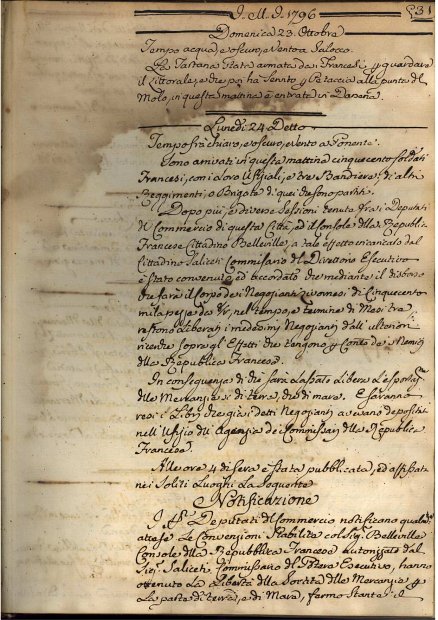 I. M. I. 1796
531
Domenica 23. Ottobre
Tempo acqua, e oscuro, e Vento a Scilocco.
La Tartana Stata armata da i Francesi, p guardare
il Littorale, e che pn ha Servito p Pataccia alla punta del
Molo, in questa mattina è entrata in Darsena.
Lunedì 24 Detto
Tempo frà chiaro, e oscuro, e Vento a Ponente.
Sono arrivati in questa mattina cinquecento Soldati
Francesi, con i loro Uffiziali, e tre Bandiere, di altri
Reggimenti, o Brigate di quei che sono partiti.
Dopo più, e diverse Sessioni tenute fra i Deputati
di Commercio di questa Città, ed il Console della Repubblica
Francese Cittadino Belleville, a tale effetto incaricato dal
Cittadino Saliceti Commissario del Direttorio Esecutivo
è stato convenuto, ed accordato che mediante il disborso
che farà il Corpo de i Negozianti Livornesi di Cinquecento
mila pezze da 8/r, nel tempo, e termine di Mesi tre
restono liberati i medesimi Negozianti dall' ulteriori
ricerche sopra gl' Effetti che tengono p Conto de i Nemici
della Repubblica Francese.
In conseguenza di che sarà lasciato libera l'esportaz.ne
delle Mercanzie sì di terra, che di mare. E saranno
resi i Libri che già i detti Negozianti avevano depositati
nell' Uffizio dell' Agenzia de i Commissarj della Repubblica
Francese.
Alle ore 4 di Sera è stata pubblicata, ed affissata
ne i Soliti Luoghi la Seguente
Notificazione
I Deputati del Commercio notificano qualm.te
attese le Convenzioni Stabilite col Sig.r Belleville
Console della Repubblica Francese autorizzato dal
Sig.r Saliceti Commissario del Potere Esecutivo, hanno
ottenuto la libertà della Sortita delle Mercanzie p
la parte di terra, e di Mare, fermo Stante il